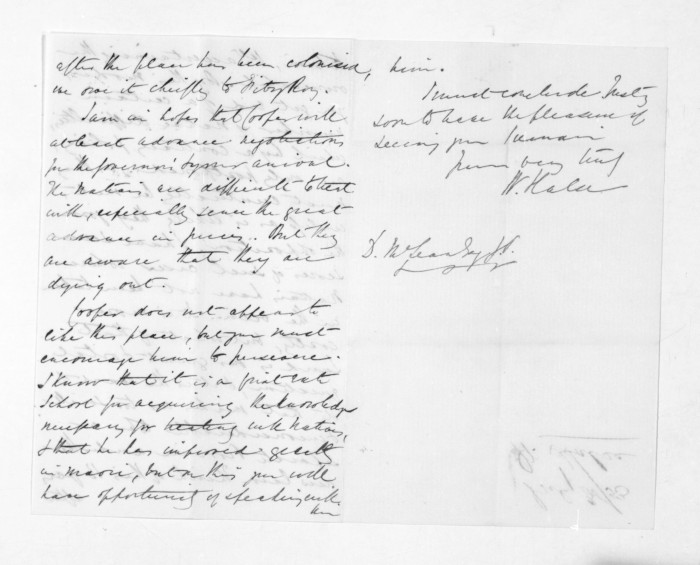 after the place has been colonised,
we owe it chiefly to FitzRoy.
I am in hopes that Cooper will
at least advance negotiations
for the Governor's & your arrival.
The Natives are difficult to treat
with, especially since the great
advance in prices. But they
are aware that they are
dying out.
Cooper does not appear to
like this place, but you must
encourage him to persevere.
I know that it is a first rate
School for acquiring the knowledge
necessary for treating with Natives,
& that he has improved greatly
in maori, but on this you will
have opportunity of speaking with
him
him.
I must conclude Trusting
soon to have the pleasure of
seeing you I remain
Yours very truly
W. Halse
D. McLean Esq J.P.
W. Halse